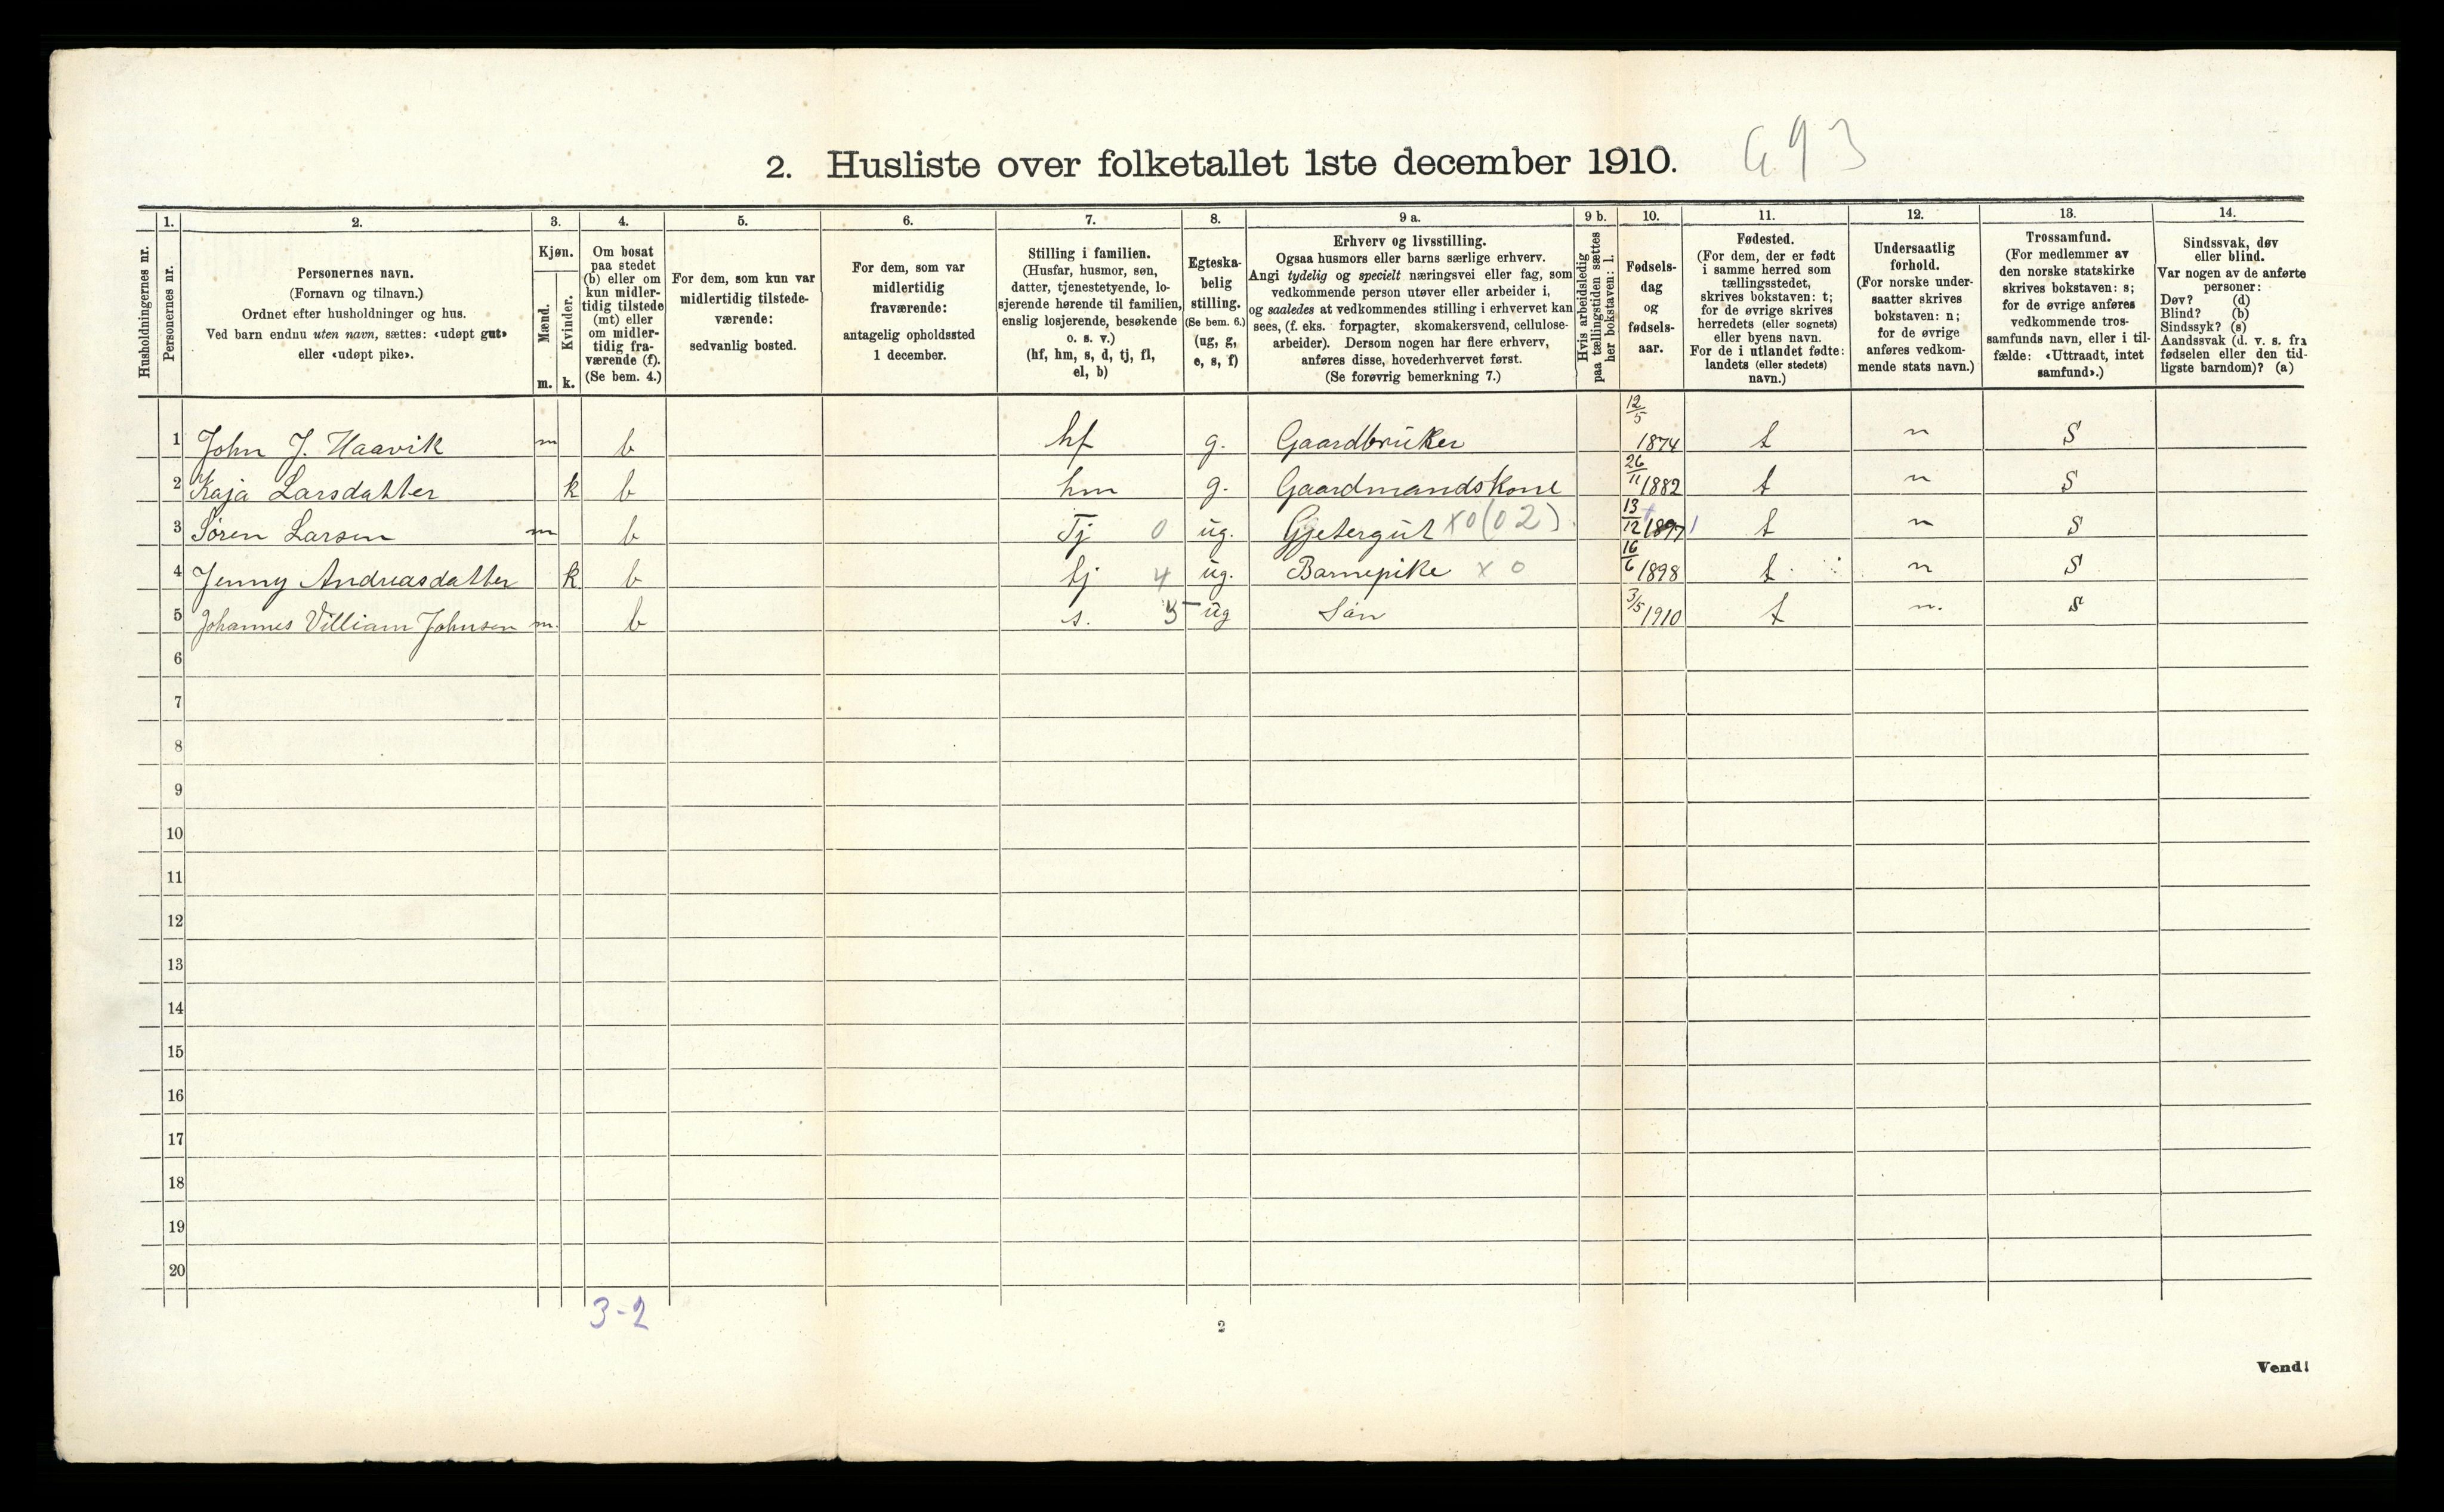 2. Husliste over folketallet 1ste december 1910. 693
Husholdningernes nr.
1. Personernes nr.
2.
Personernes navn.
(Fornavn og tilnavn.)
Ordnet efter husholdninger og hus.
Ved barn endnu uten navn, sættes: «udøpt gut»
eller «udøpt pike».
3.
Kjøn.
Mænd. m.
Kvinder. k.
4.
Om bosat
paa stedet
(b) eller om
kun midler-
tidig tilstede
(mt) eller
om midler-
tidig fra-
værende (f).
(Se bem. 4.)
5.
For dem, som kun var
midlertidig tilstede-
værende:
sedvanlig bosted.
6.
For dem, som var
midlertidig
fraværende:
antagelig opholdssted
1 december.
7.
Stilling i familien.
(Husfar, husmor, søn,
datter, tjenestetyende, lo-
sjerende hørende til familien,
enslig losjerende, besøkende
o. s. v.)
(hf, hm, s, d, tj, fl,
el, b)
8.
Egteska-
belig
stilling.
(Se bem. 6.)
(ug, g,
e, s, f)
9 a.
Erhverv og livsstilling.
Ogsaa husmors eller barns særlige erhverv.
Angi tydelig og specielt næringsvei eller fag, som
vedkommende person utøver eller arbeider i,
og saaledes at vedkommendes stilling i erhvervet kan
sees, (f. eks. forpagter, skomakersvend, cellulose-
arbeider). Dersom nogen har flere erhverv,
anføres disse, hovederhvervet først.
(Se forøvrig bemerkning 7.)
9 b.
Hvis arbeidsledig
paa tællingstiden sættes
her bokstaven: l.
10.
Fødsels-
dag
og
fødsels-
aar.
11.
Fødested.
(For dem, der er født
i samme herred som
tællingsstedet,
skrives bokstaven: t;
for de øvrige skrives
herredets (eller sognets)
eller byens navn.
For de i utlandet fødte:
landets (eller stedets)
navn.)
12.
Undersaatlig
forhold.
(For norske under-
saatter skrives
bokstaven: n;
for de øvrige
anføres vedkom-
mende stats navn.)
13.
Trossamfund.
(For medlemmer av
den norske statskirke
skrives bokstaven: s;
for de øvrige anføres
vedkommende tros-
samfunds navn, eller i til-
fælde: «Uttraadt, intet
samfund».)
14.
Sindssvak, døv
eller blind.
Var nogen av de anførte
personer:
Døv? (d)
Blind? (b)
Sindssyk? (s)
Aandssvak (d. v. s. fra
fødselen eller den tid-
ligste barndom)? (a)
1 John J. Haavik m b hf g. Gaardbruker 12/5 1874 t n S
2 Kaja Larsdatter k b hm g. Gaardmandskone 26/11 1882 t n S
3 Søren Larsen m b Tj 0 ug. Gjetergut x0(02) 13/12 1897 t n S
4 Jenny Andreasdatter k b tj 4 ug. Barnepike x 0 16/6 1898 t n S
5 Johannes Villiam Johnsen m. b s. 5 ug Søn 3/5 1910 t n. S
6
7
8
9
10
11
12
13
14
15
16
17
18
19
20
3-2
2
Vend!